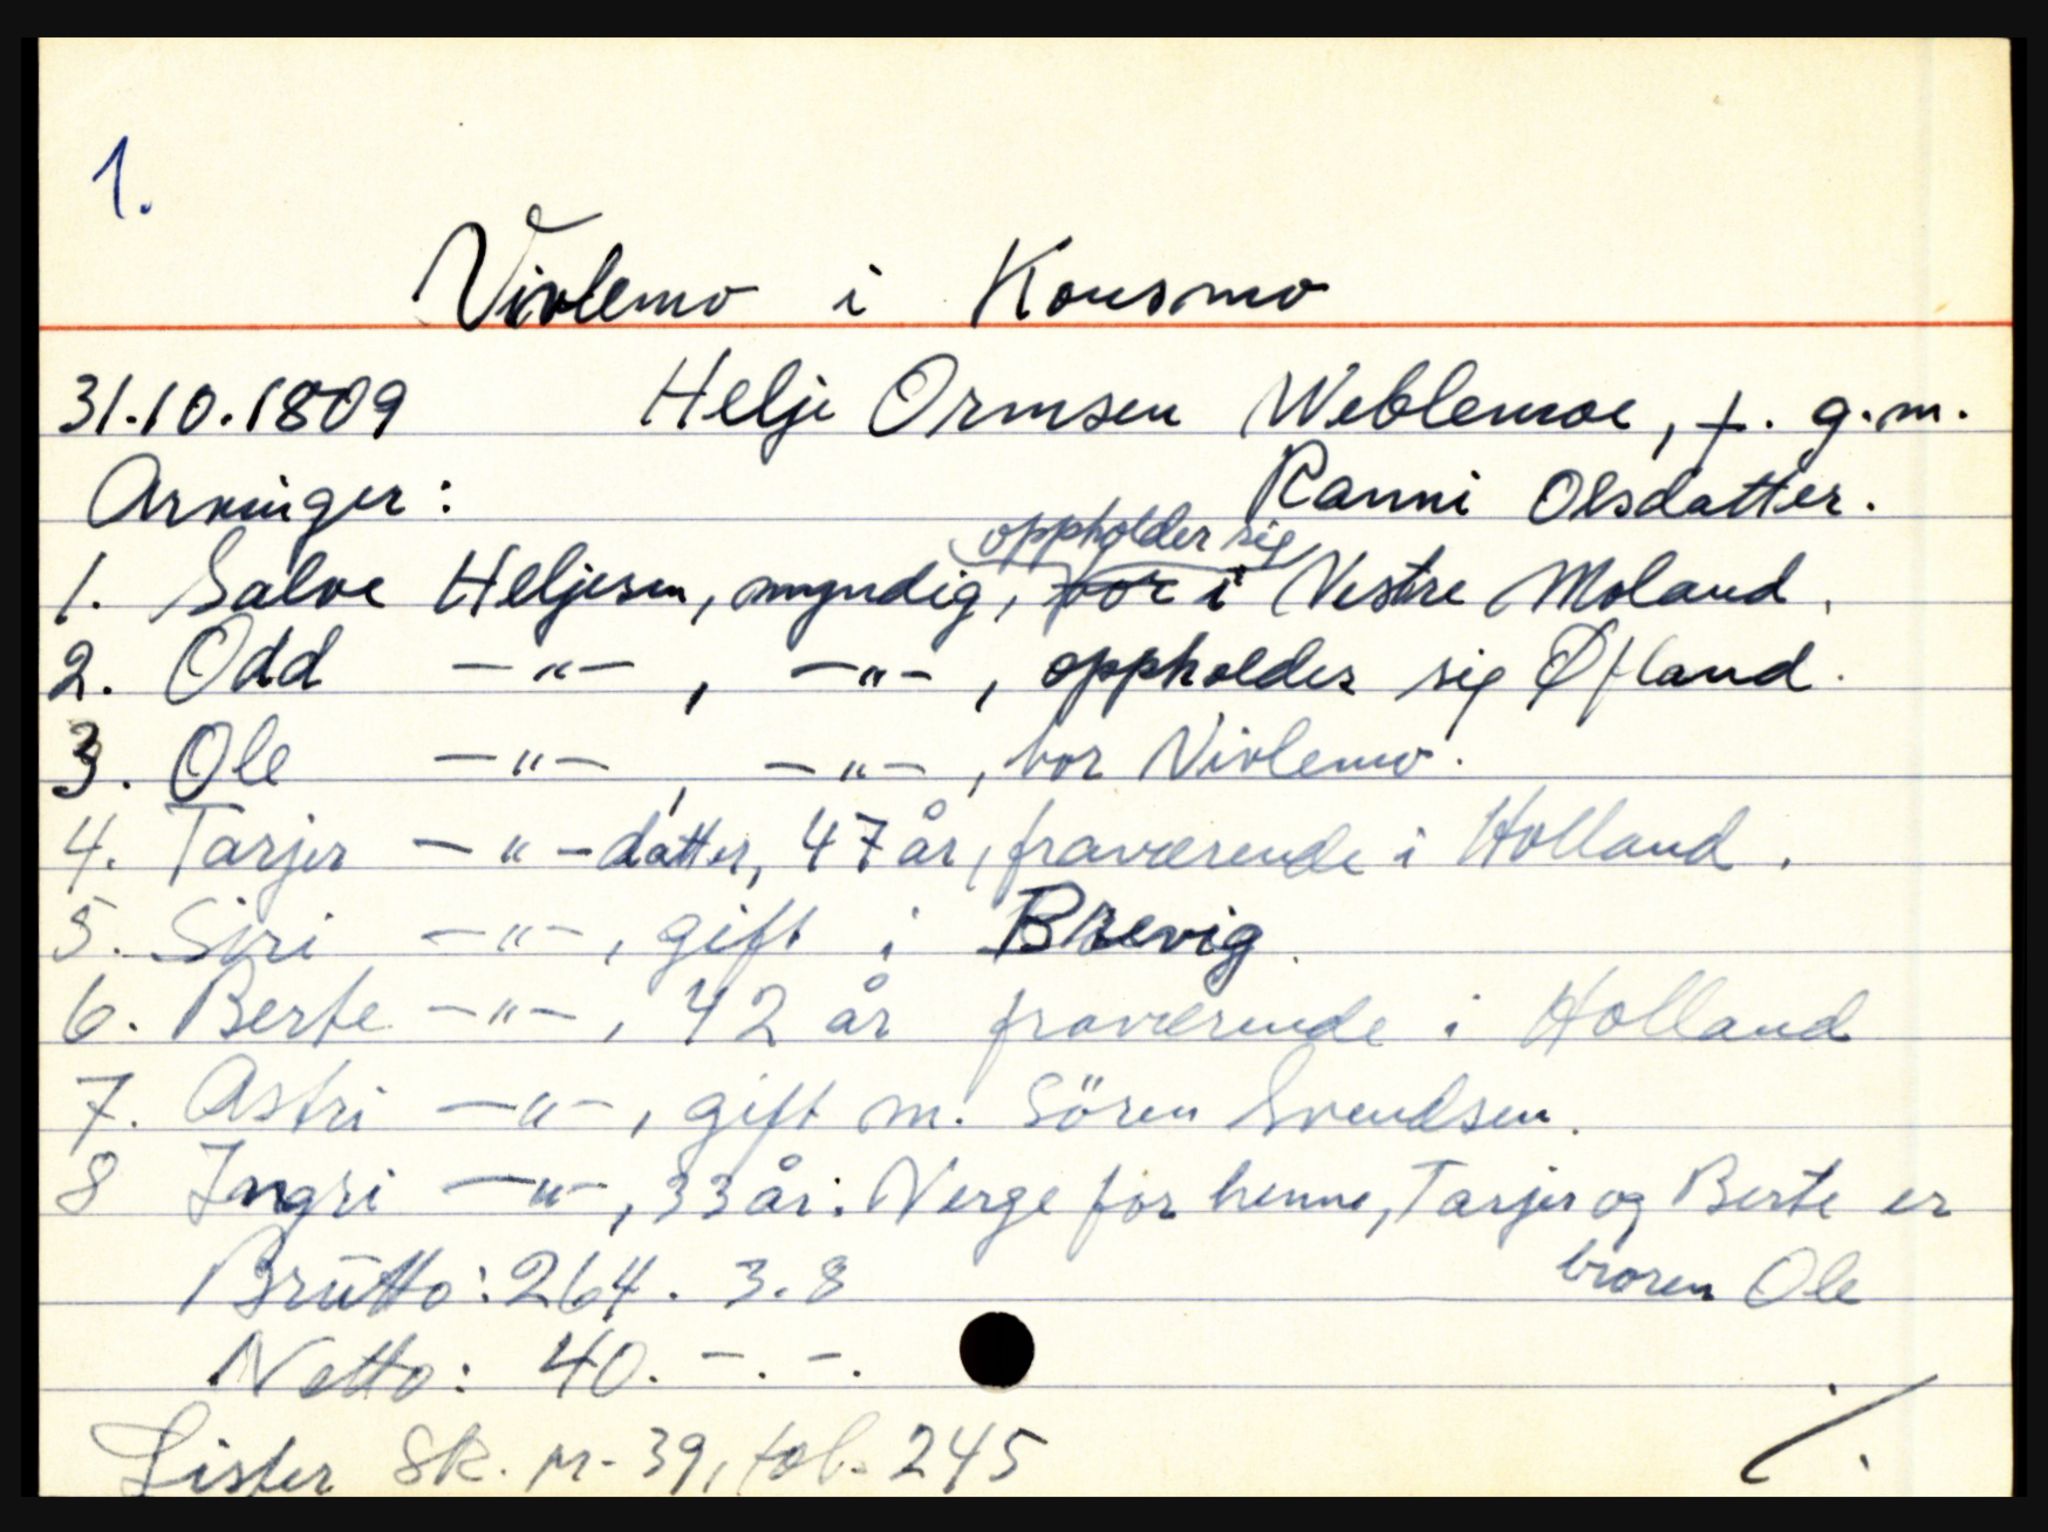 1.
Vivlemo i Konsmo
31.10.1809 Helje Ormsen Weblemoe, +. g.m.
Arvinger: Ranni Olsdatter.
oppholder sig
1. Salve Heljesen, myndig, bor i Vestre Moland.
2. Odd -"-, -"-, oppholder sig Øfland.
3. Ole -"-, -"-, bor Vivlemo.
4. Tarjer -"-datter, 47 år, fraværende i Holland.
5. Siri -"-, gift i Brevig.
6. Berte -"-, 42 år fraværende i Holland
7. Astri -"-, gift m. Sören Svendsen.
8 Ingri -"-, 33 år: Verge for henne, Tarjer og Berte er
broren Ole
Brutto: 264. 3. 8
Netto: 40. -. -.
Lister Sk. pr. 39, fol. 245
./.